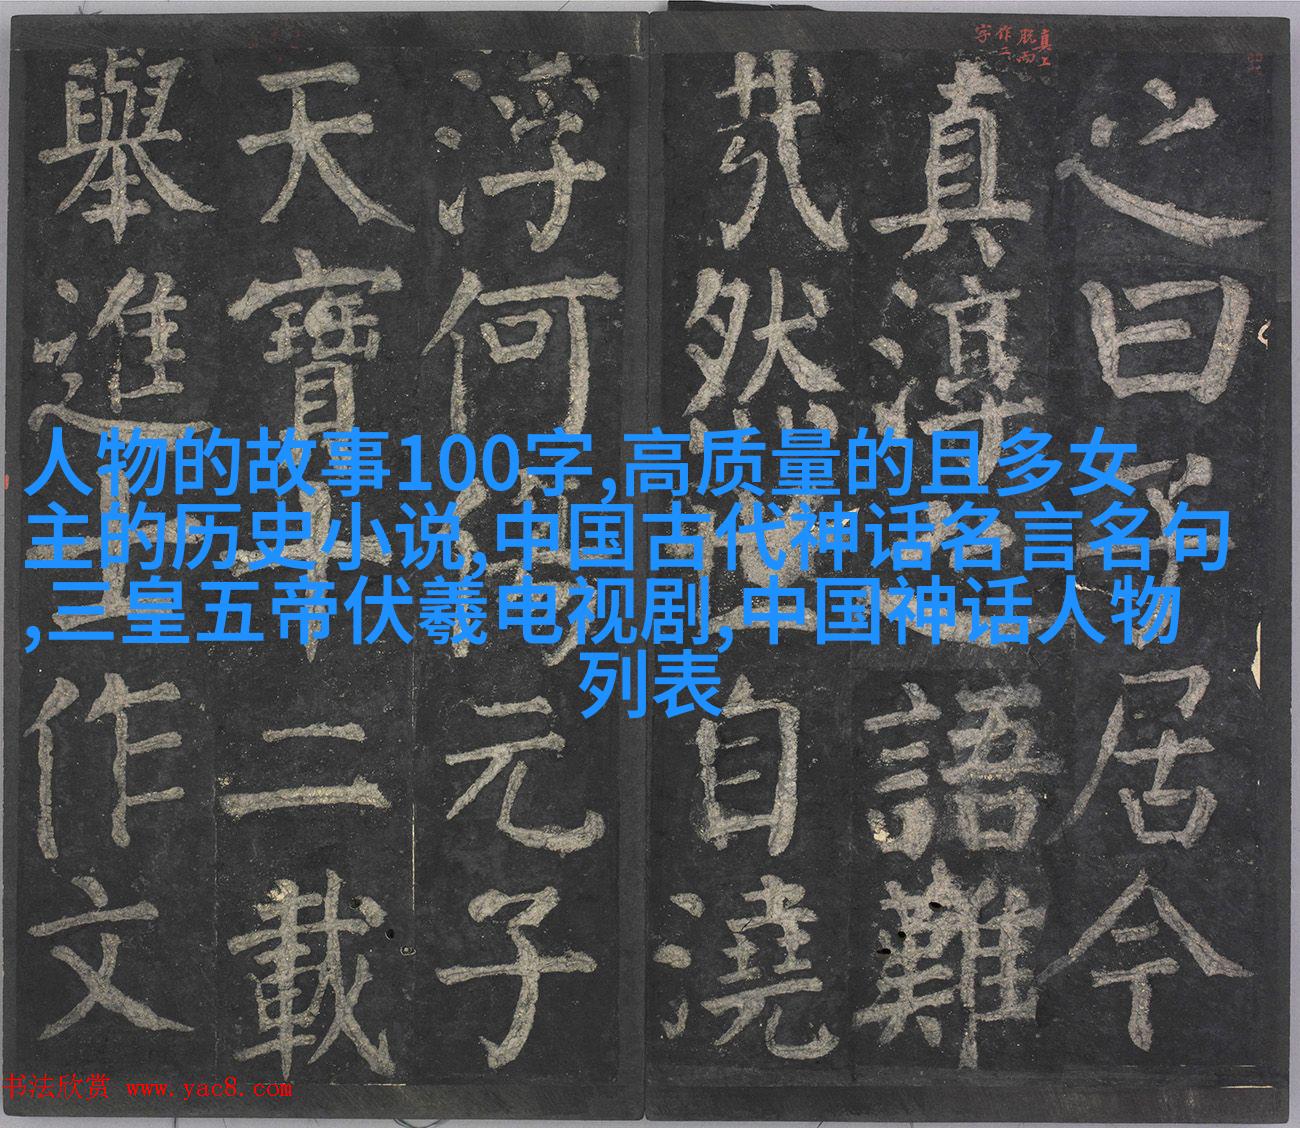 之曰子居今
真淳之語難
哉然世自澆
浮何傷元子
天寶十二載
舉進士作文
真上
脫而
作二
字
人物的故事100字,高质量的且多女
主的历史小说,中国古代神话名言名句
,三皇五帝伏羲电视剧,中国神话人物
列表
书法欣赏 www.yac8.com